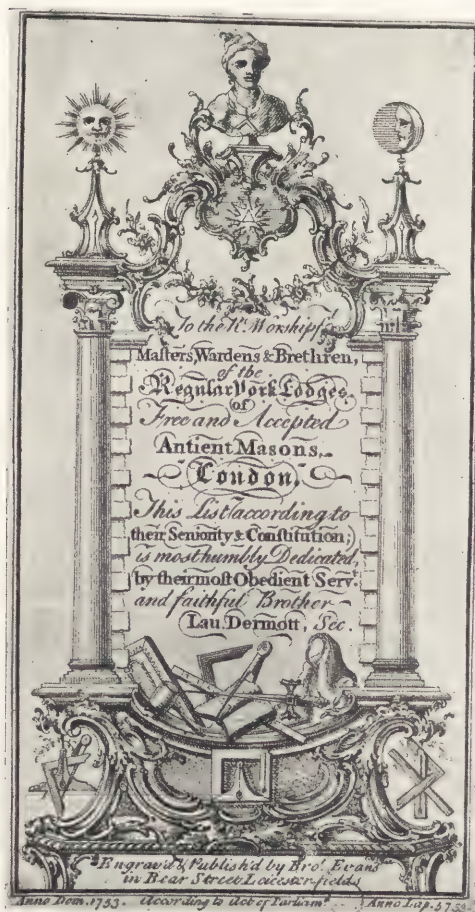 To the Rt. Worshipf.l
Masters, Wardens & Brethren,
of the
Regular York Lodges
of
Free and Accepted
Antient Masons,
London.
This List according to
their Seniority & Constitution;
is most humbly Dedicated,
by their most Obedient Servt.
and faithful Brother
Lau. Dermott, Sec.
Engrav'd & Publish'd by Bro.r Evans
in Bear Street Leicester-fields
Anno Dom. 1753. According to Act of Parliamt. Anno Lap. 5753